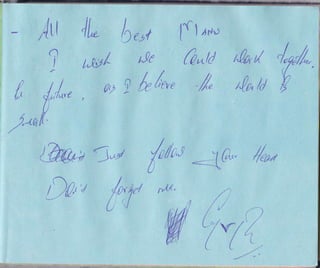 - All the best MANN
I wish we could work together,
In future, as I believe the world is
small.
Just follow your Heart
Don't forget me.